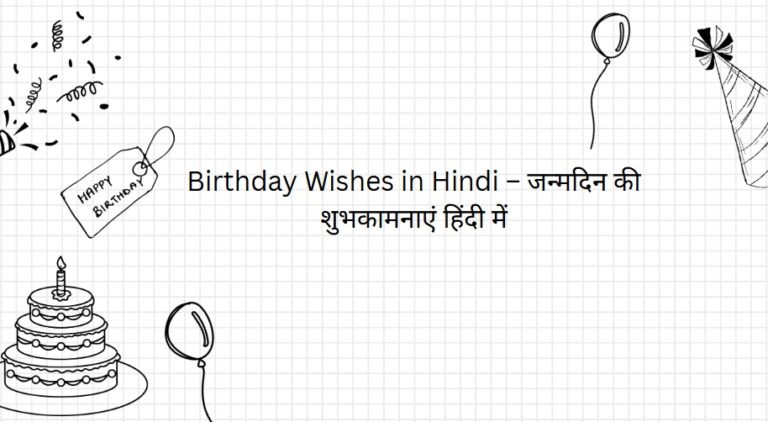 HAPPY
BIRTHDAY
Birthday Wishes in Hindi – जन्मदिन की
शुभकामनाएं हिंदी में